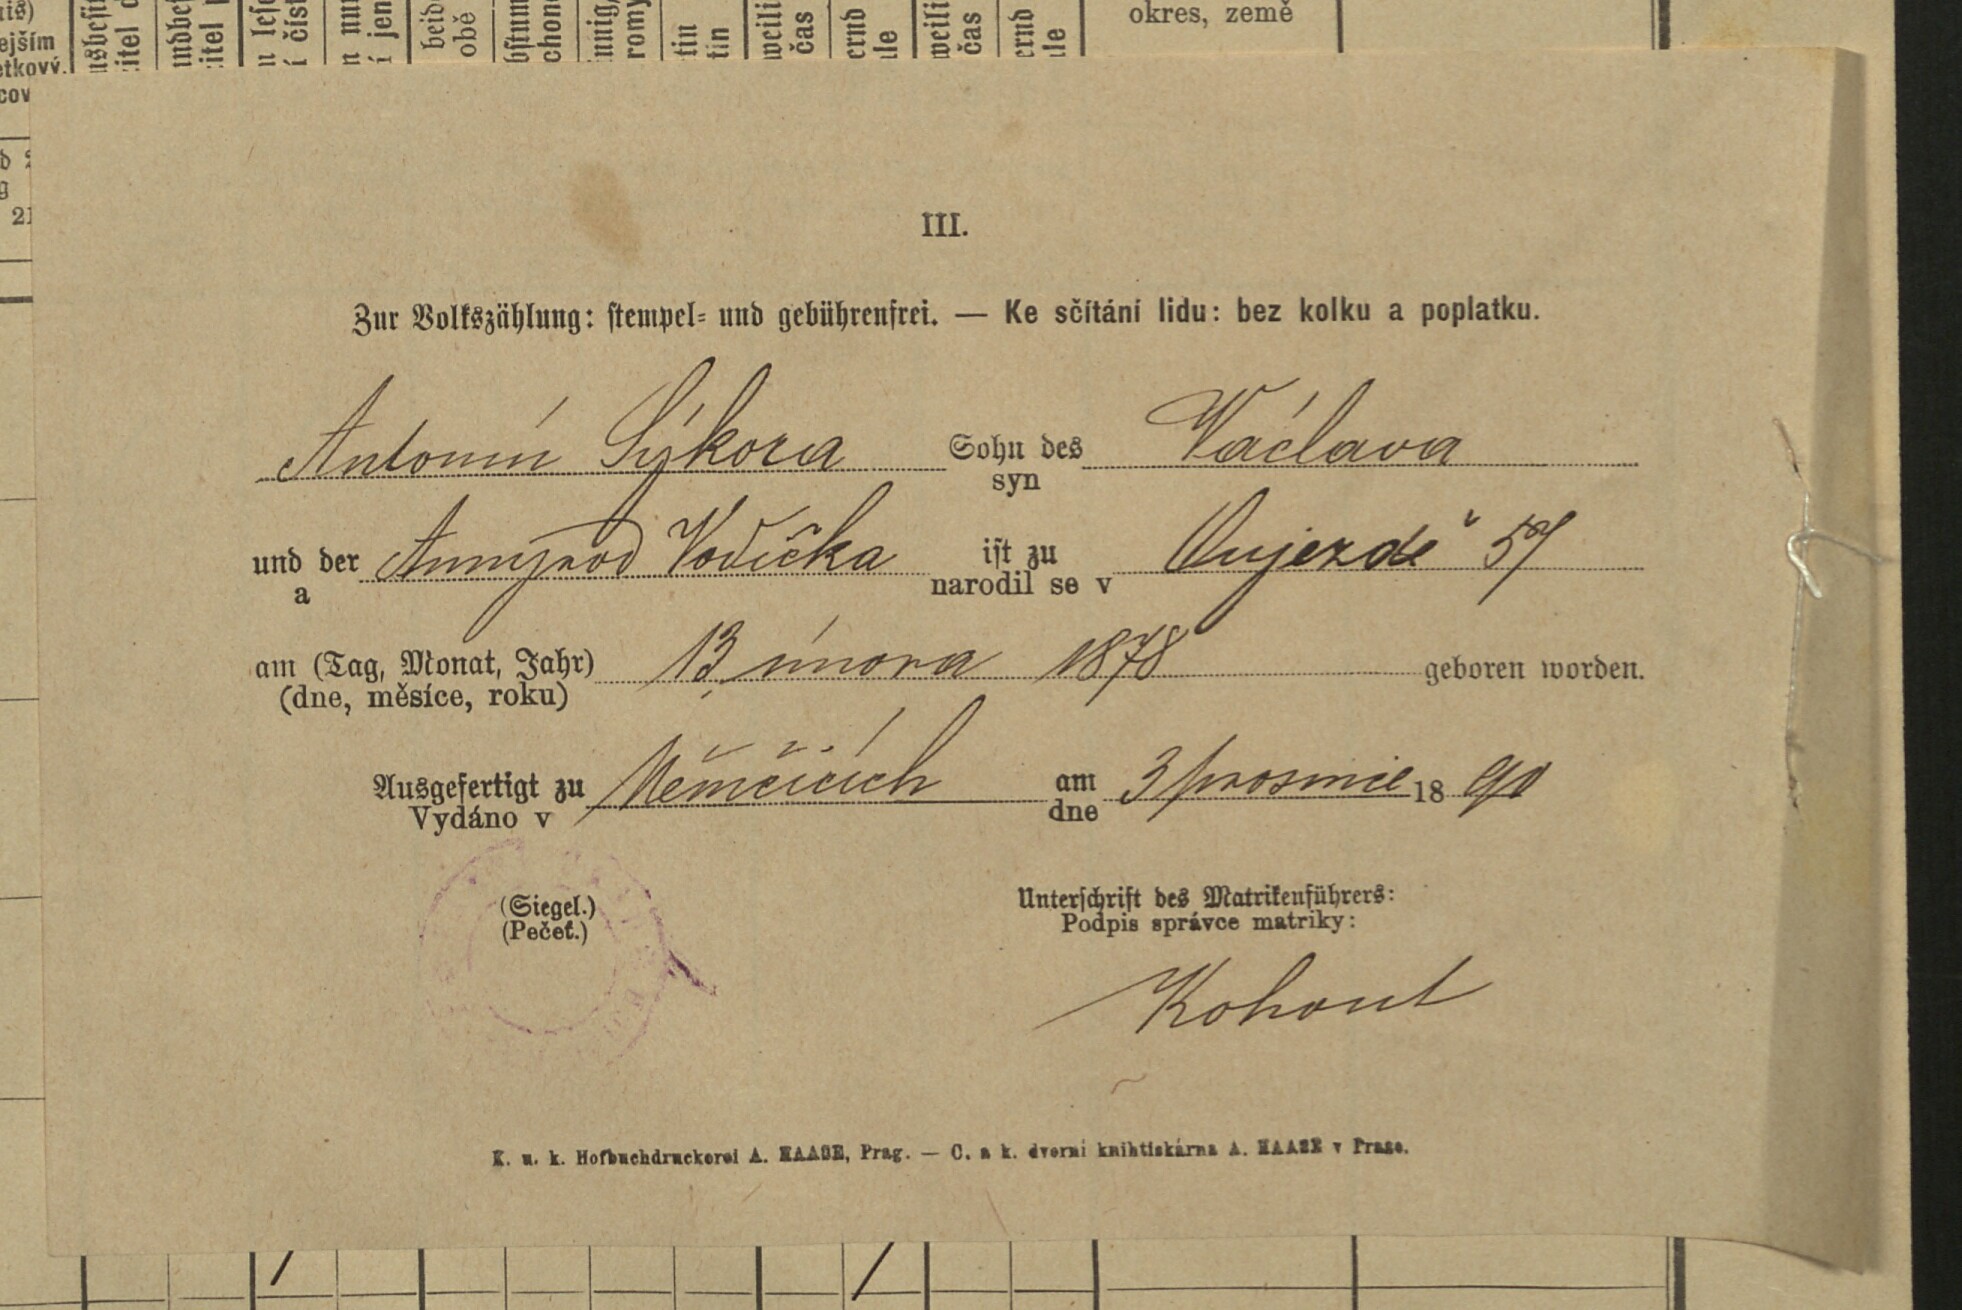 okres, země
III.
Zur Volkszählung: stempel- und gebührenfrei. — Ke sčítání lidu: bez kolku a poplatku.
Antonín Sýkora Sohn des Václava
syn
und der Anny rod Vodička ist zu Oujezdě 57
a narodil se v
am (Tag, Monat, Jahr) 13. února 1878 geboren worden.
(dne, měsíce, roku)
Ausgefertigt zu Němčicích am 3 prosince 1890
Vydáno v dne
(Siegel.)
(Pečeť.)
Unterschrift des Matrikenführers:
Podpis správce matriky:
Kohout
K. u. k. Hofbuchdruckerei A. HAASE, Prag. — C. a k. dvorní knihtiskárna A. HAASE v Praze.